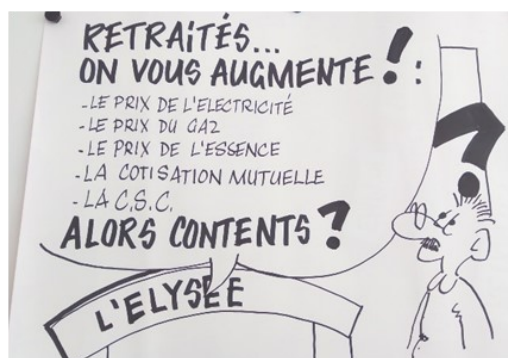 RETRAITÉS...
ON VOUS AUGMENTE ! :
- LE PRIX DE L'ELECTRICITÉ
- LE PRIX DU GAZ
- LE PRIX DE L'ESSENCE
- LA COTISATION MUTUELLE
- LA C.S.C.
ALORS CONTENTS ?
?
L'ELYSÉE